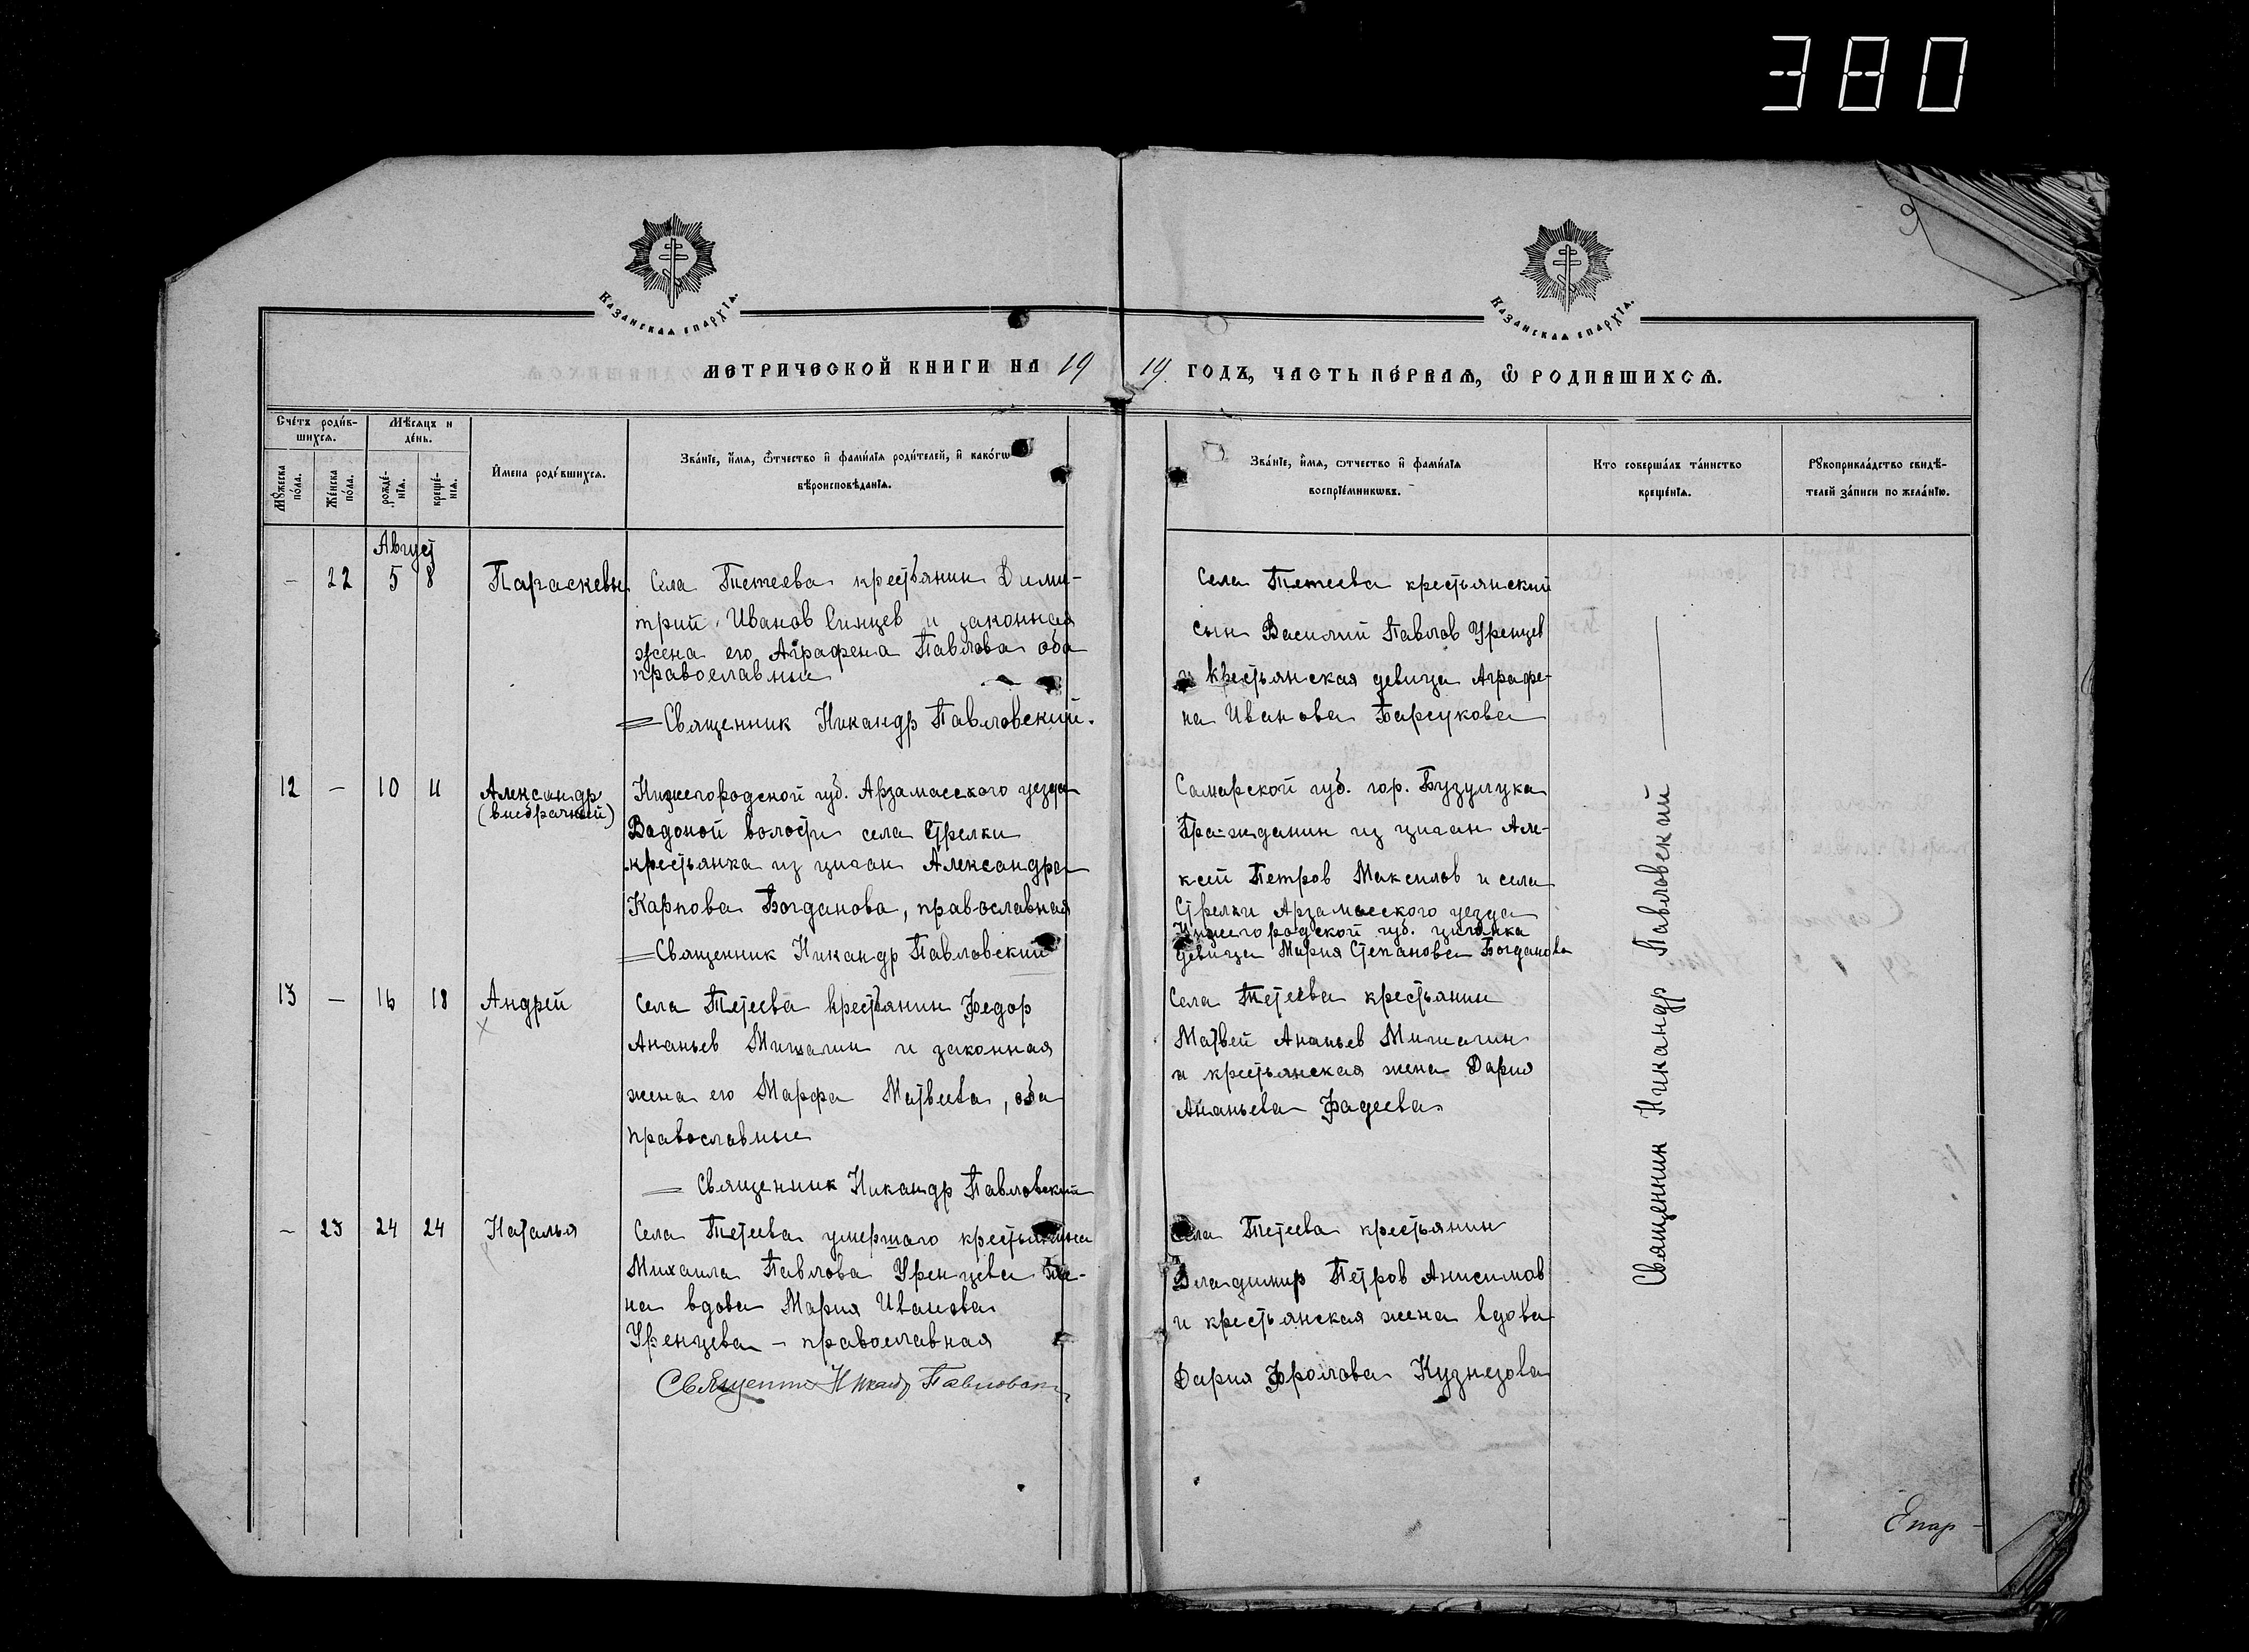 380
9
КАЗАНСКАЯ ЕПАРХІЯ.
КАЗАНСКАЯ ЕПАРХІЯ.
МЕТРИЧЕСКОЙ КНИГИ НА 19 19 ГОДЪ, ЧАСТЬ ПЕ́РВАЯ, Ѿ РОДИВШИХСЯ.
Сче́тъ роди́в-
шихся.
Мѣ́сяцъ и
де́нь.
Мꙋ́жеска
по́ла.
Же́нска
по́ла.
рожде́-
нїѧ.
креще́-
нїѧ.
И́мена роди́вшихся.
Зва́нїе, и́мя, ѻ́тчество и҆ фами́лїя роди́телей, и҆ како́гѡ
вѣроисповѣ́данїя.
Зва́нїе, и́мя, ѻтчество и҆ фами́лїя
воспрїе́мникѡвъ.
Кто соверша́лъ та́инство
креще́нїя.
Рꙋкоприкла́дство свидѣ́-
телей за́писи по жела́нїю.
Август
– 22 5 8 Параскевы
Села Тетеева крестьянин Дими-
трий Иванов Синцев и законная
жена его Аграфена Павлова оба
православные
Священник Никандр Павловский.
Села Тетеева крестьянский
сын Василий Павлов Уренцев
и крестьянская девица Аграфе-
на Иванова Барсукова
12 – 10 11 Александр
(внебрачный)
Нижегородской губ. Арзамасского уезда
волости села Стрелки
крестьянка из цыган Александра
Карпова Богданова, православная
Священник Никандр Павловский
Самарской губ. гор. Бузулука
Гражданин из цыган Але-
ксей Петров Максилов и села
Стрелки Арзамасского уезда
Нижегородской губ. цыганка
девица Мария Степанова Богданова
13 – 16 18 Андрей
Села Тетеева крестьянин Федор
Ананьев Мишагин и законная
жена его Марфа Матвеева, оба
православные
Священник Никандр Павловский
Села Тетеева крестьянин
Матвей Ананьев Мишагин
и крестьянская жена Дария
Ананьева Фадеева
– 23 24 24 Наталья
Села Тетеева умершаго крестьянина
Михаила Павлова Уренцева же-
на вдова Мария Иванова
Уренцева – православная
Священник Никандр Павловский
Села Тетеева крестьянин
Владимир Петров Анисимов
и крестьянская жена вдова
Дария Фролова Кузнецова
Священник Никандр Павловский
Епар-